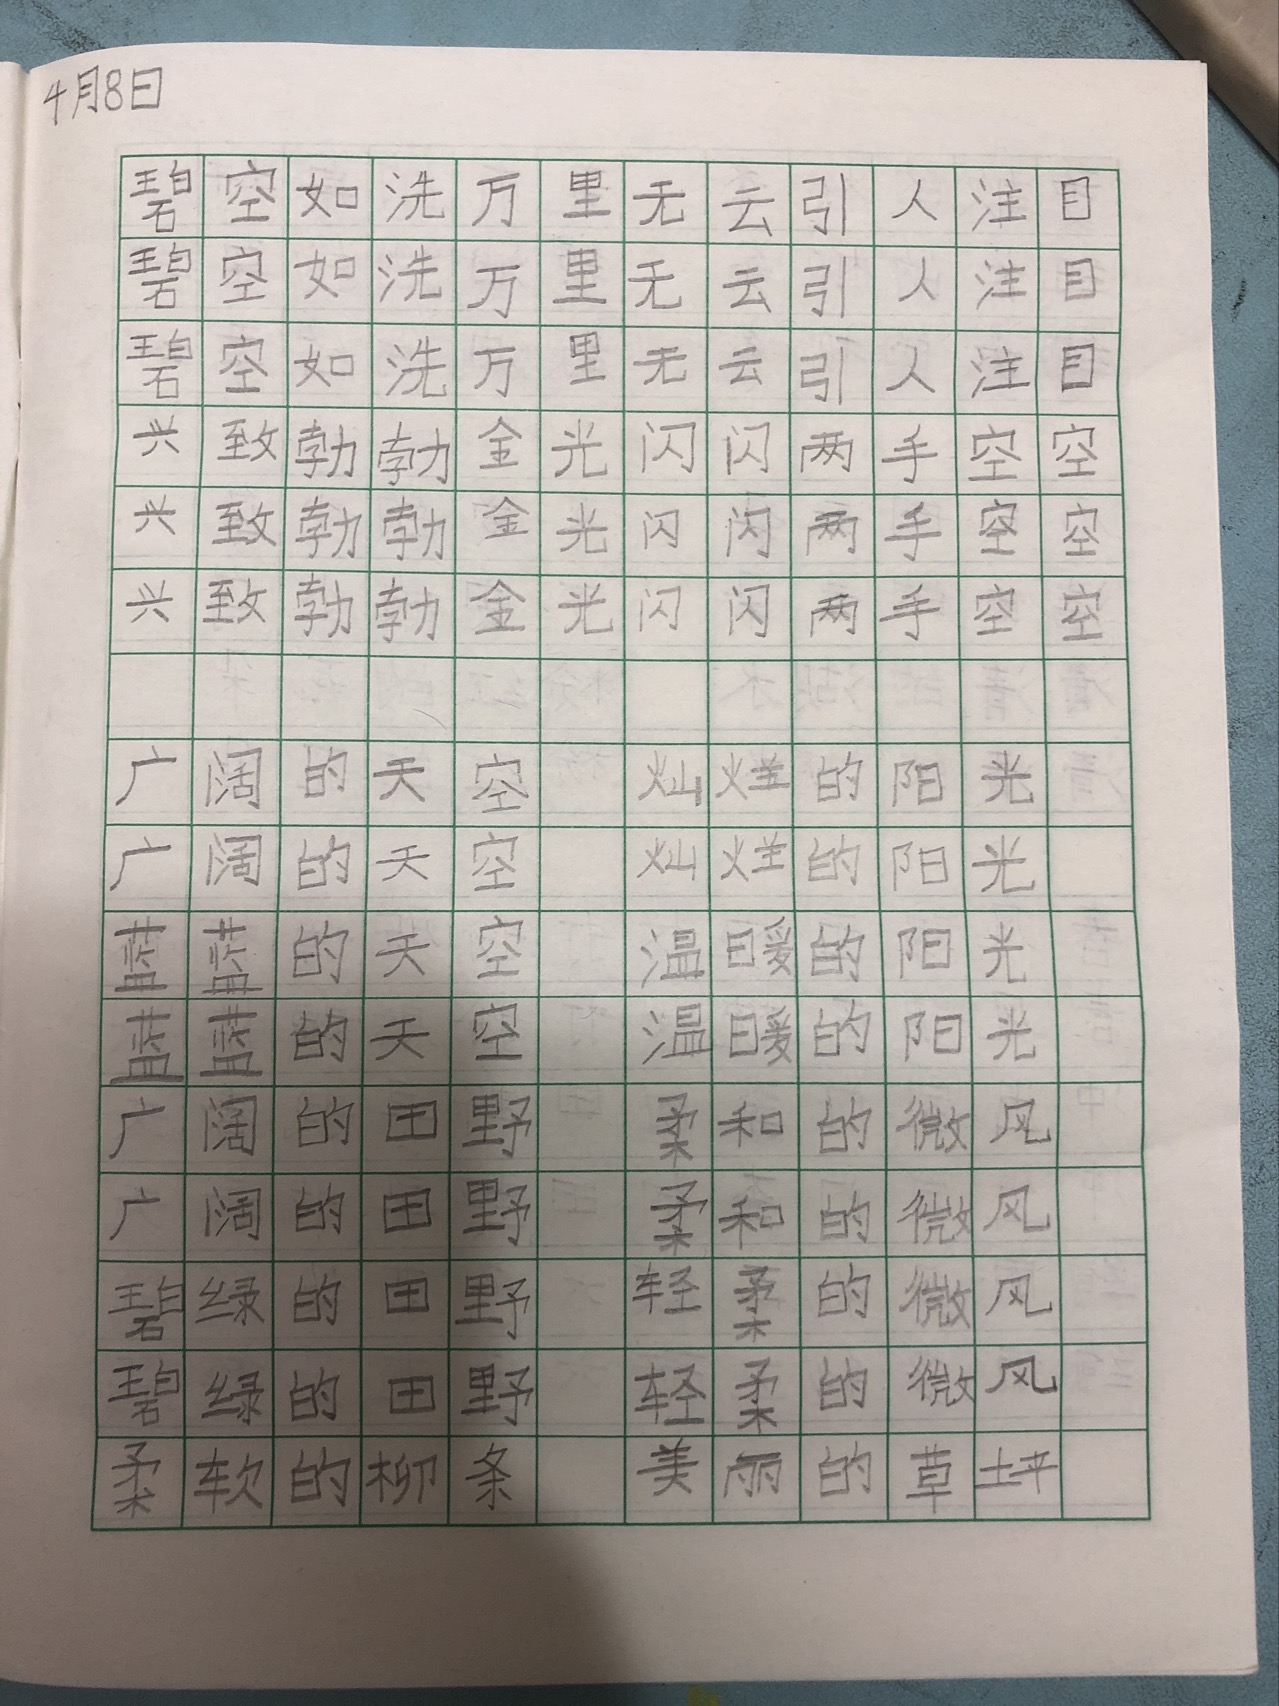 4月8日
碧空如洗万里无云引人注目
碧空如洗万里无云引人注目
碧空如洗万里无云引人注目
兴致勃勃金光闪闪两手空空
兴致勃勃金光闪闪两手空空
兴致勃勃金光闪闪两手空空
广阔的天空 灿烂的阳光
广阔的天空 灿烂的阳光
蓝蓝的天空 温暖的阳光
蓝蓝的天空 温暖的阳光
广阔的田野 柔和的微风
广阔的田野 柔和的微风
碧绿的田野 轻柔的微风
碧绿的田野 轻柔的微风
柔软的柳条 美丽的草坪